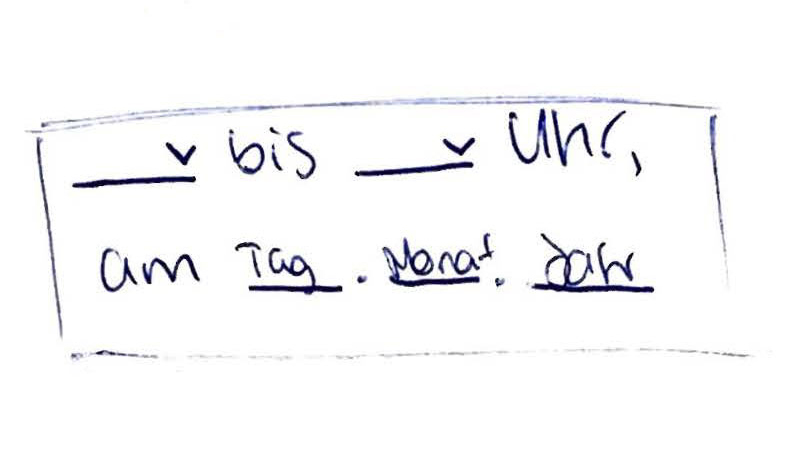 ___ v bis ___ v Uhr,
am Tag . Monat. Jahr